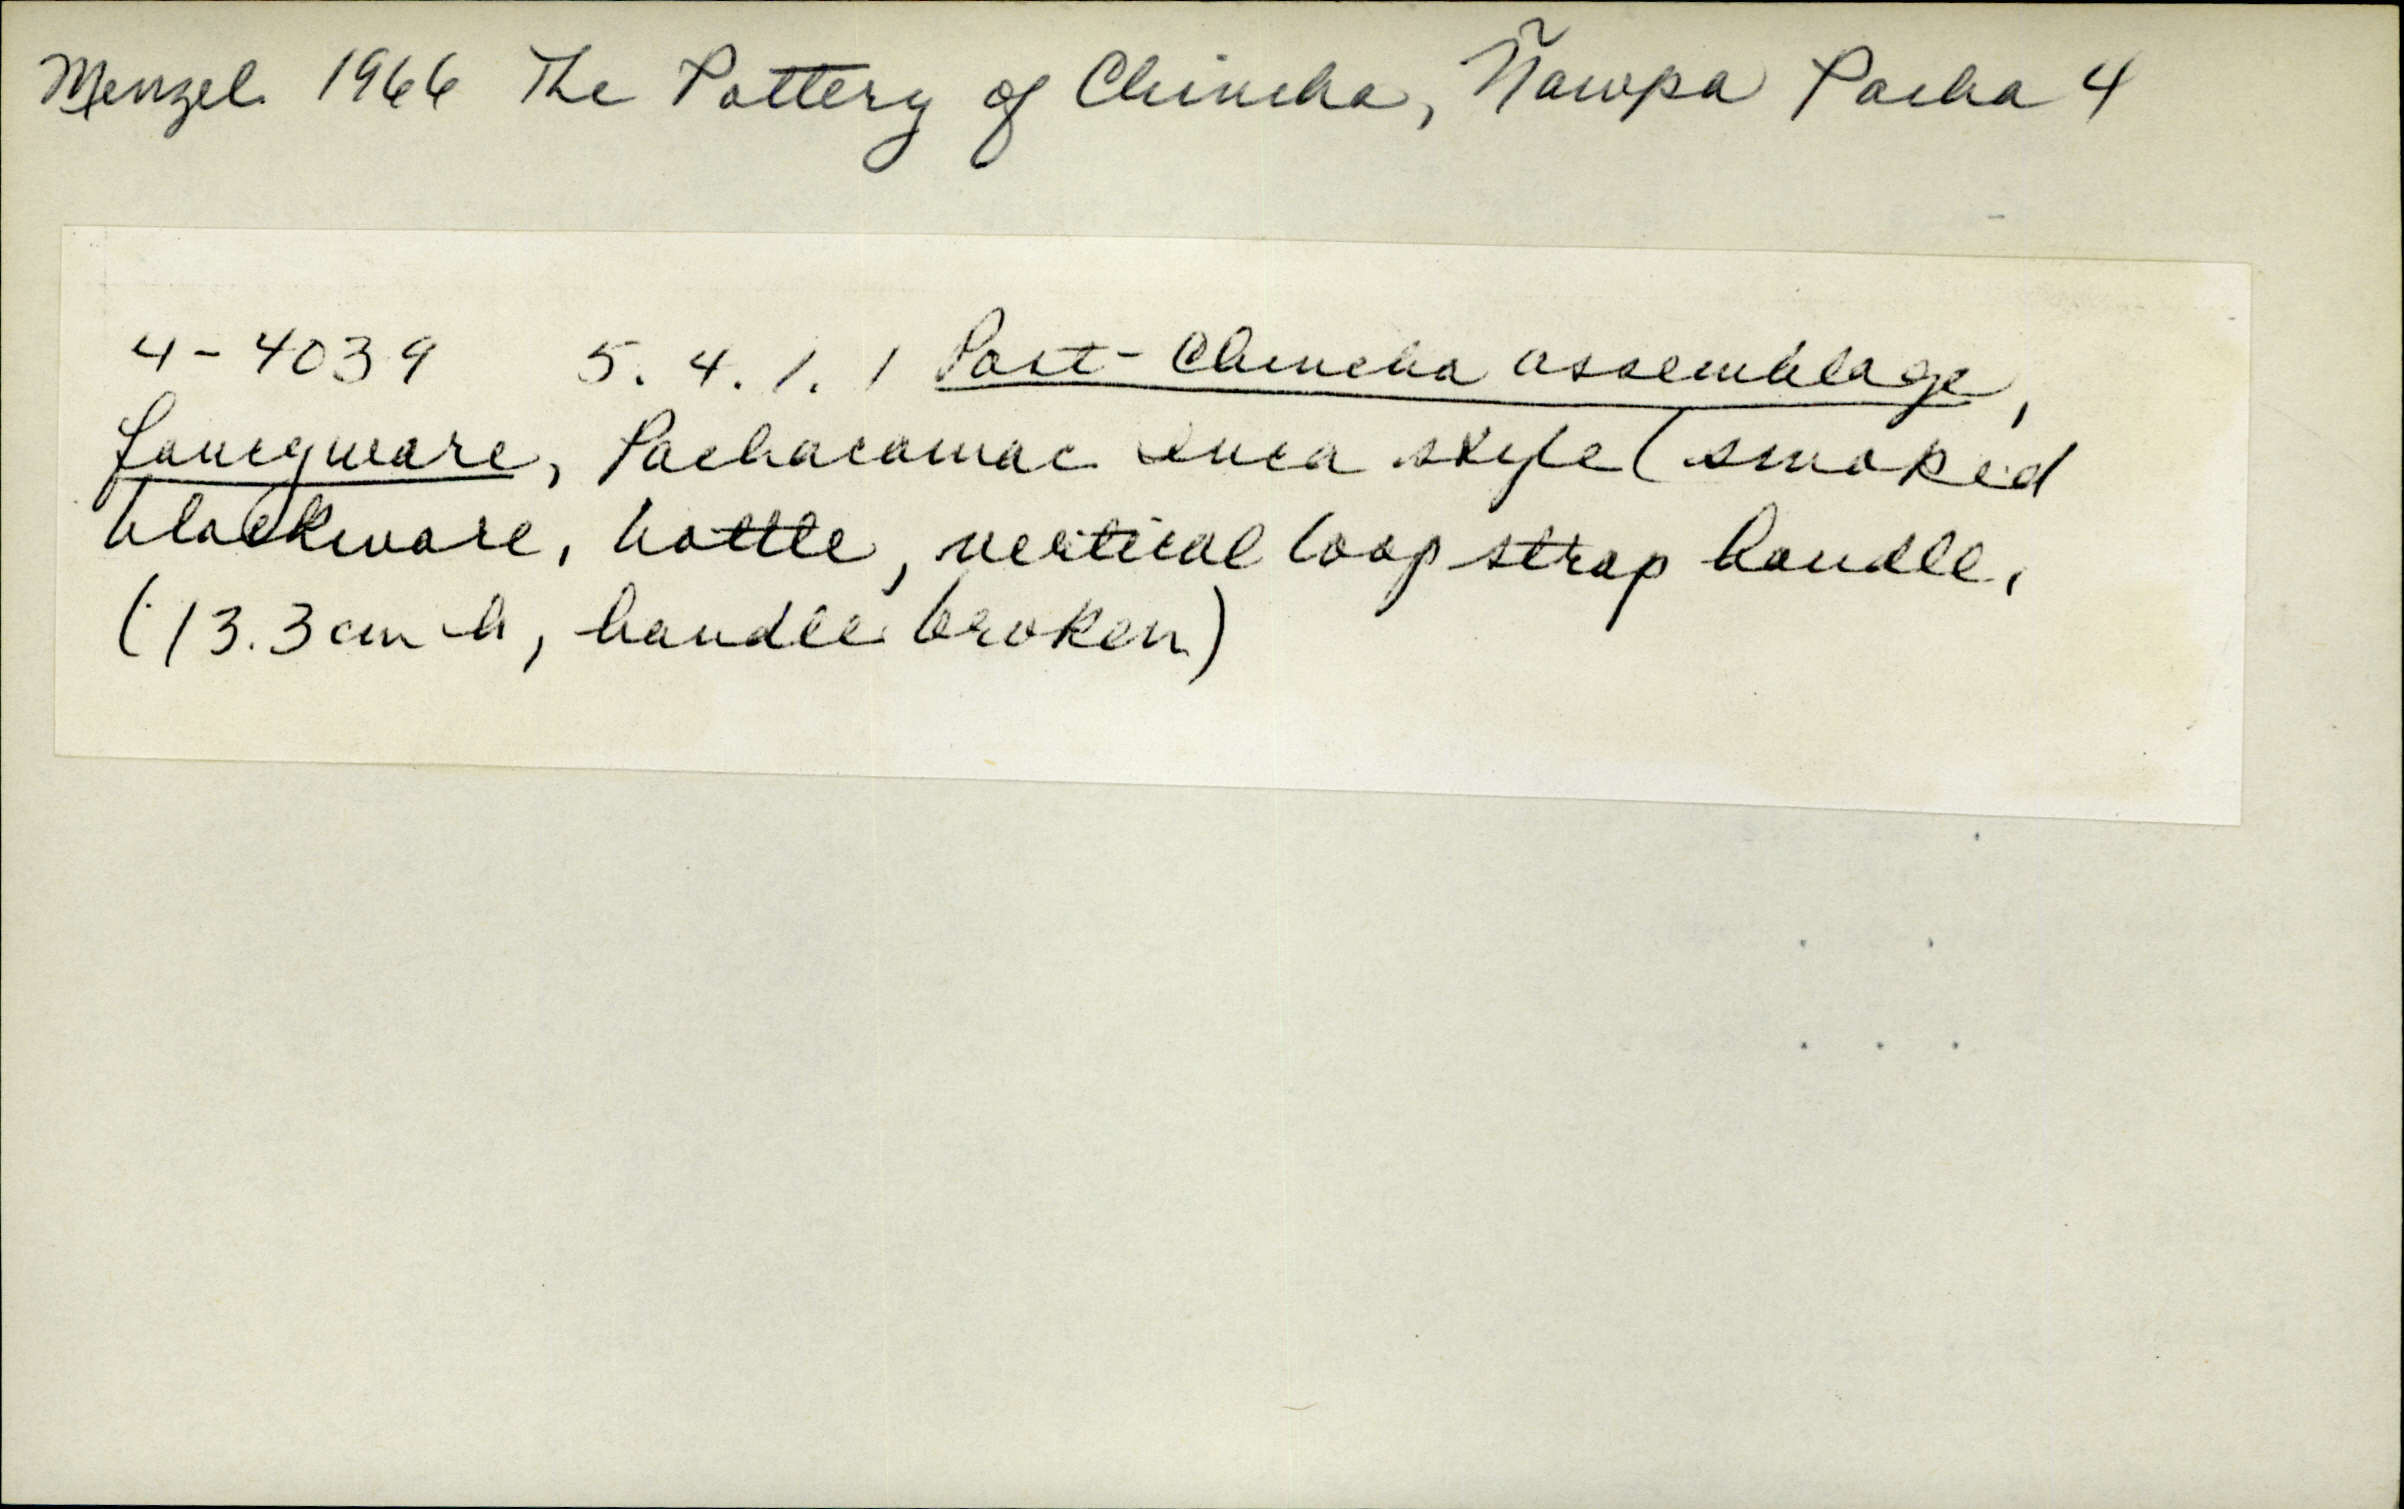 Menzel 1966 The Pottery of Chincha, Ñawpa Pacha 4
4-4039 5.4.1.1 Post-Chincha assemblage,
fancyware, Pachacamac Inca style (smoked
blackware, bottle, vertical loop strap handle,
(13.3cm h, handle broken)